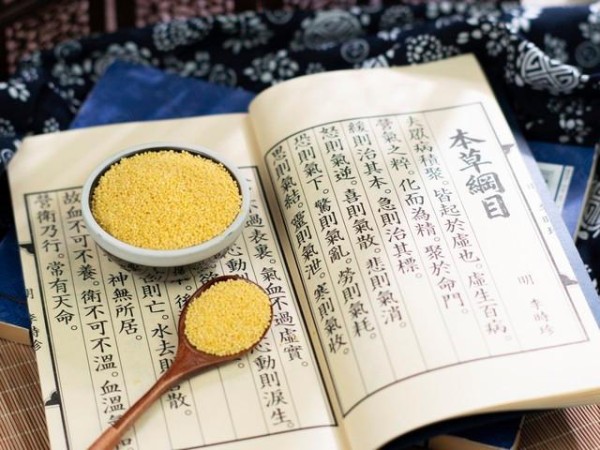 本草綱目
明 李時珍
夫眾病積聚。皆起於虛也。虛生百病。
營氣之粹。化而為精。聚於命門。
緩則治其本。急則治其標。
怒則氣逆。喜則氣散。悲則氣消。
恐則氣下。驚則氣亂。勞則氣耗。
思則氣結。靈則氣泄。寒則氣收。
過表裏。氣血不過虛實。
心動
心動則淚生。
則亡。水去
散。
神無所居。
故血不可不養。衛不可不溫。血溫氣
營衛乃行。常有天命。
明 李時珍